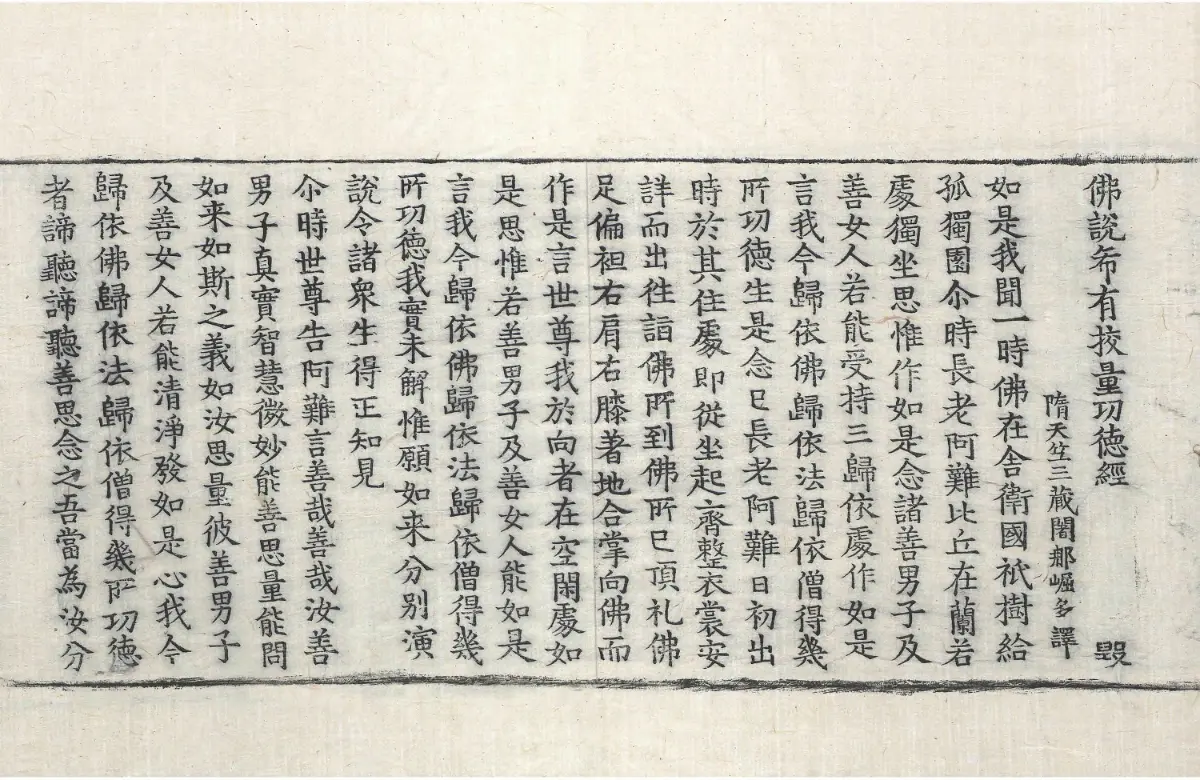 佛說希有挍量功德經 毀
隋天竺三藏闍那崛多譯
如是我聞一時佛在舍衛國祇樹給
孤獨園尒時長老阿難比丘在蘭若
處獨坐思惟作如是念諸善男子及
善女人若能受持三歸依處作如是
言我今歸依佛歸依法歸依僧得幾
所功德生是念已長老阿難日初出
時於其住處即從坐起齊整衣裳安
詳而出往詣佛所到佛所已頂礼佛
足偏袒右肩右膝著地合掌向佛而
作是言世尊我於向者在空閑處如
是思惟若善男子及善女人能如是
言我今歸依佛歸依法歸依僧得幾
所功德我實未解惟願如来分别演
說令諸衆生得正知見
尒時世尊告阿難言善哉善哉汝善
男子真實智慧微妙能善思量能問
如来如斯之義如汝思量彼善男子
及善女人若能清淨發如是心我今
歸依佛歸依法歸依僧得幾所功德
者諦聽諦聽善思念之吾當為汝分